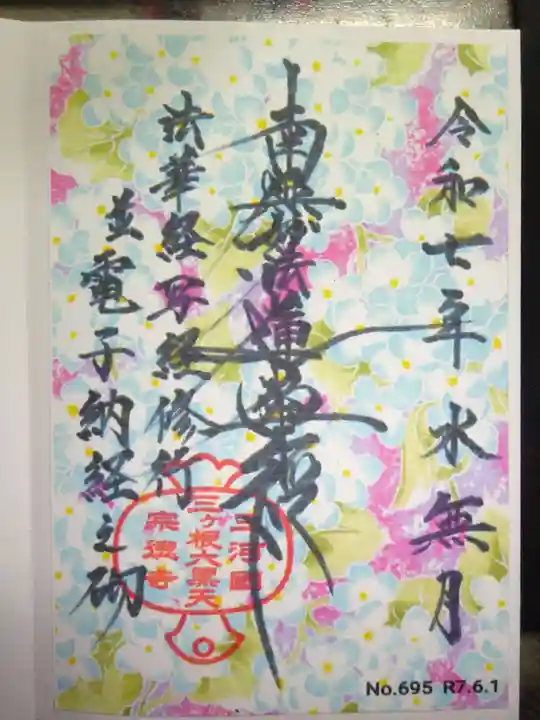 令和七年水無月
南無妙法蓮華経
法華経写経修行
並電子納経之砌
三河國
三ヶ根六景天
宗徳寺
No.695 R7.6.1